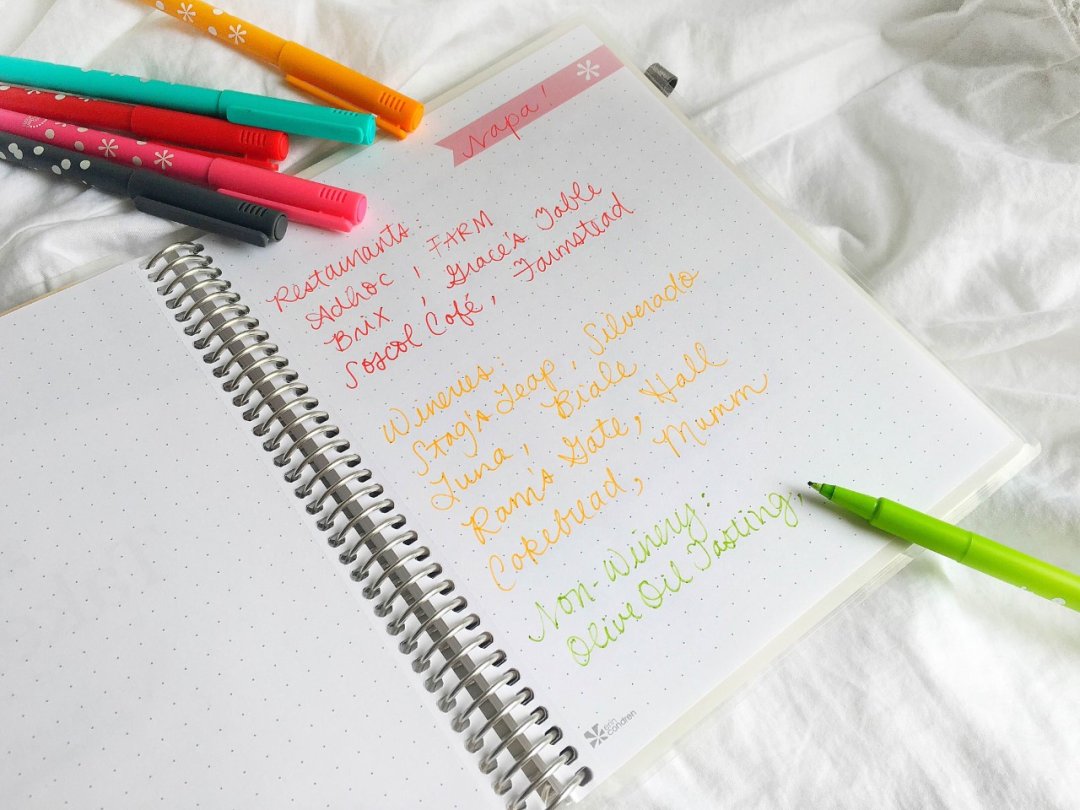 Napa!
Restaurants:
Adhoc, FARM
Brix, Grace's Table
Soscol Café, Farmstead
Wineries:
Stag's Leap, Silverado
Luna, Biale
Ram's Gate, Hall
Cakebread, Mumm
Non-Winery:
Olive Oil Tasting,
erin
condren